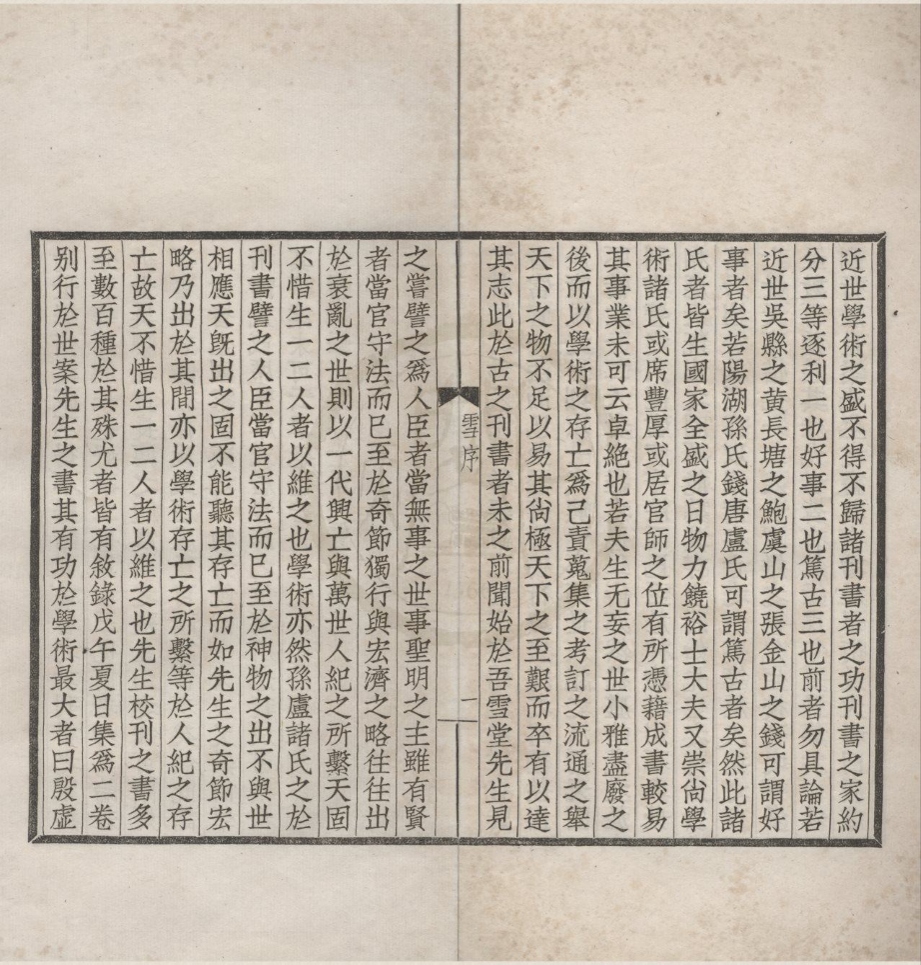 近世學術之盛不得不歸諸刊書者之功刊書之家約
分三等逐利一也好事二也篤古三也前者勿具論若
近世吳縣之黄長塘之鮑虞山之張金山之錢可謂好
事者矣若陽湖孫氏錢唐盧氏可謂篤古者矣然此諸
氏者皆生國家全盛之日物力饒裕士大夫又崇尙學
術諸氏或席豐厚或居官師之位有所憑藉成書較易
其事業未可云卓絶也若夫生无妄之世小雅盡廢之
後而以學術之存亡爲己責蒐集之考訂之流通之舉
天下之物不足以易其尙極天下之至艱而卒有以達
其志此於古之刊書者未之前聞始於吾雪堂先生見
雪序
一
之嘗譬之爲人臣者當無事之世事聖明之主雖有賢
者當官守法而已至於奇節獨行與宏濟之略往往出
於衰亂之世則以一代興亡與萬世人紀之所繫天固
不惜生一二人者以維之也學術亦然孫盧諸氏之於
刊書譬之人臣當官守法而已至於神物之出不與世
相應天旣出之固不能聽其存亡而如先生之奇節宏
略乃出於其間亦以學術存亡之所繫等於人紀之存
亡故天不惜生一二人者以維之也先生校刊之書多
至數百種於其殊尤者皆有敘錄戊午夏日集爲二卷
别行於世案先生之書其有功於學術最大者曰殷虛